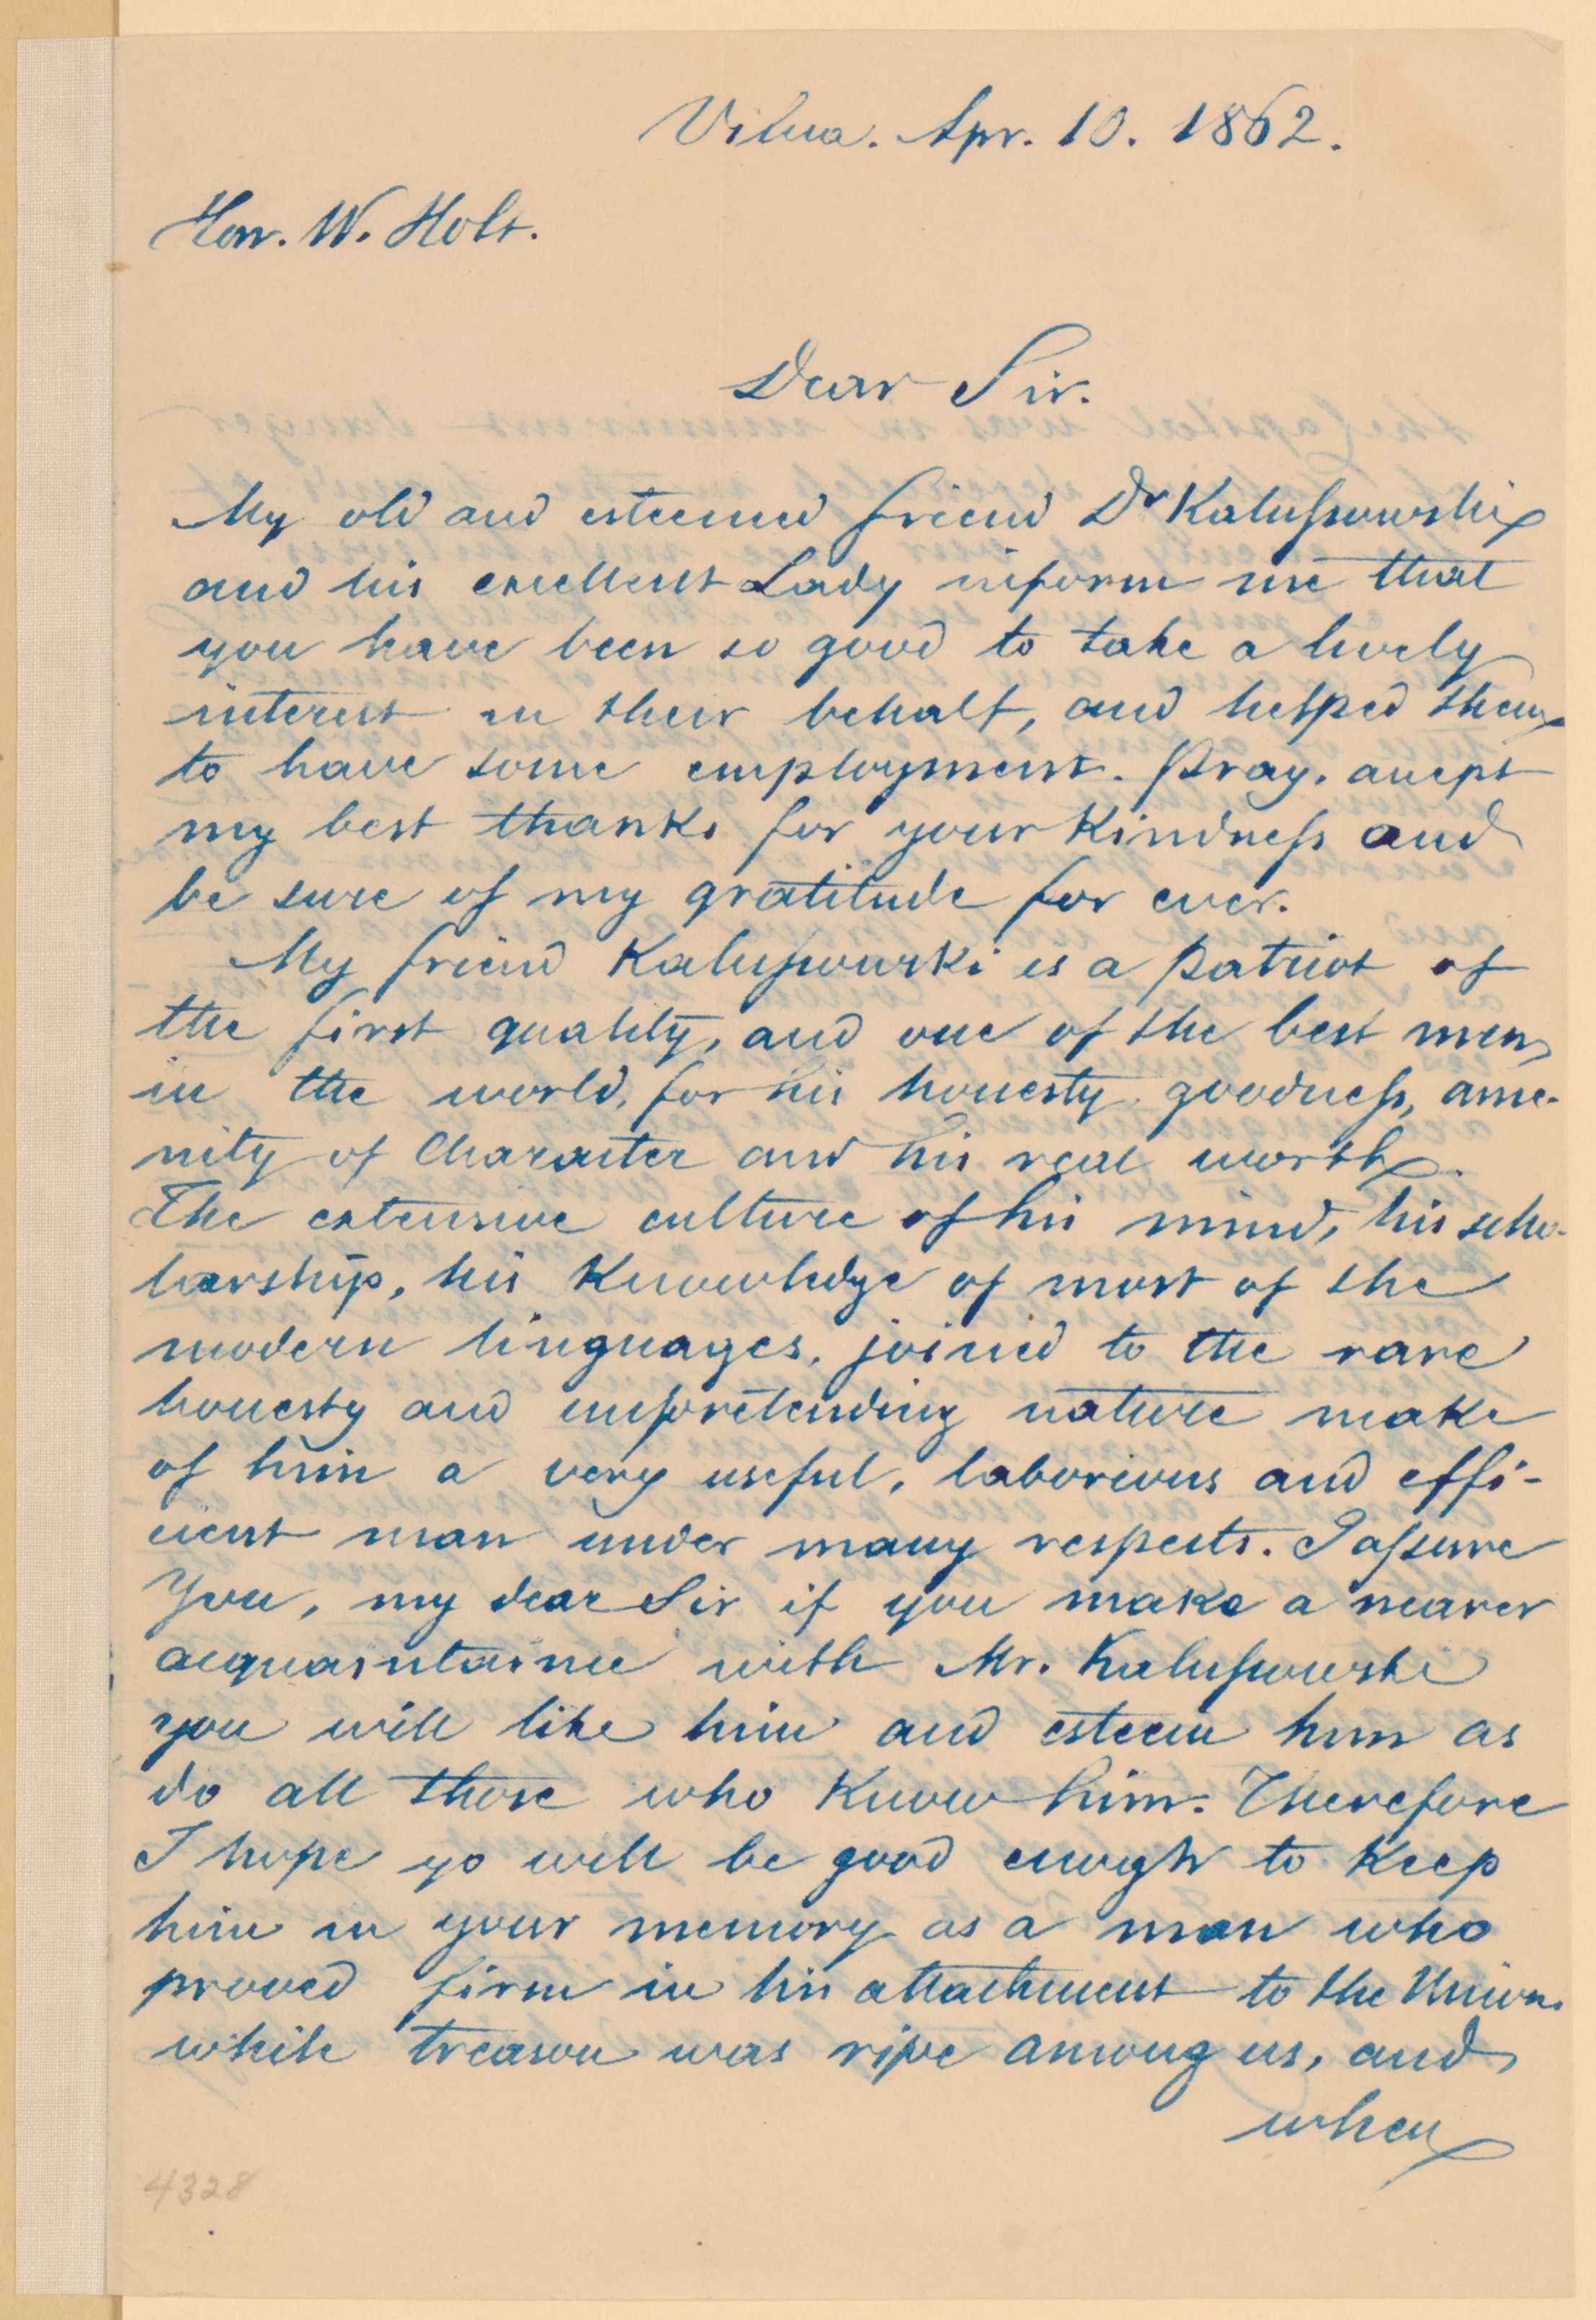 Vilna. Apr. 10. 1862.
Hon. W. Holt.
Dear Sir.
My old and esteemed friend Dr Kalussowski
and his excellent Lady inform me that
you have been so good to take a lively
interest in their behalf, and helped them
to have some employment. Pray, accept
my best thanks for your Kindness and
be sure of my gratitude for ever.
My friend Kalussowski is a patriot of
the first quality, and one of the best men
in the world, for his honesty goodness, ame-
nity of Character and his real worth.
The extensive culture of his mind, his scho-
larship, his Knowledge of most of the
modern linguages, joined to the rare
honesty and unpretending nature make
of him a very useful, laborious and effi-
cient man under many respects. I assure
You, my dear Sir if you make a nearer
acquaintaince with Mr. Kalussowski
you will like him and esteem him as
do all those who Know him. Therefore
I hope yo will be good enough to Keep
him in your memory as a man who
proved firm in his attachment to the Union.
while treason was ripe among us, and
when
4328